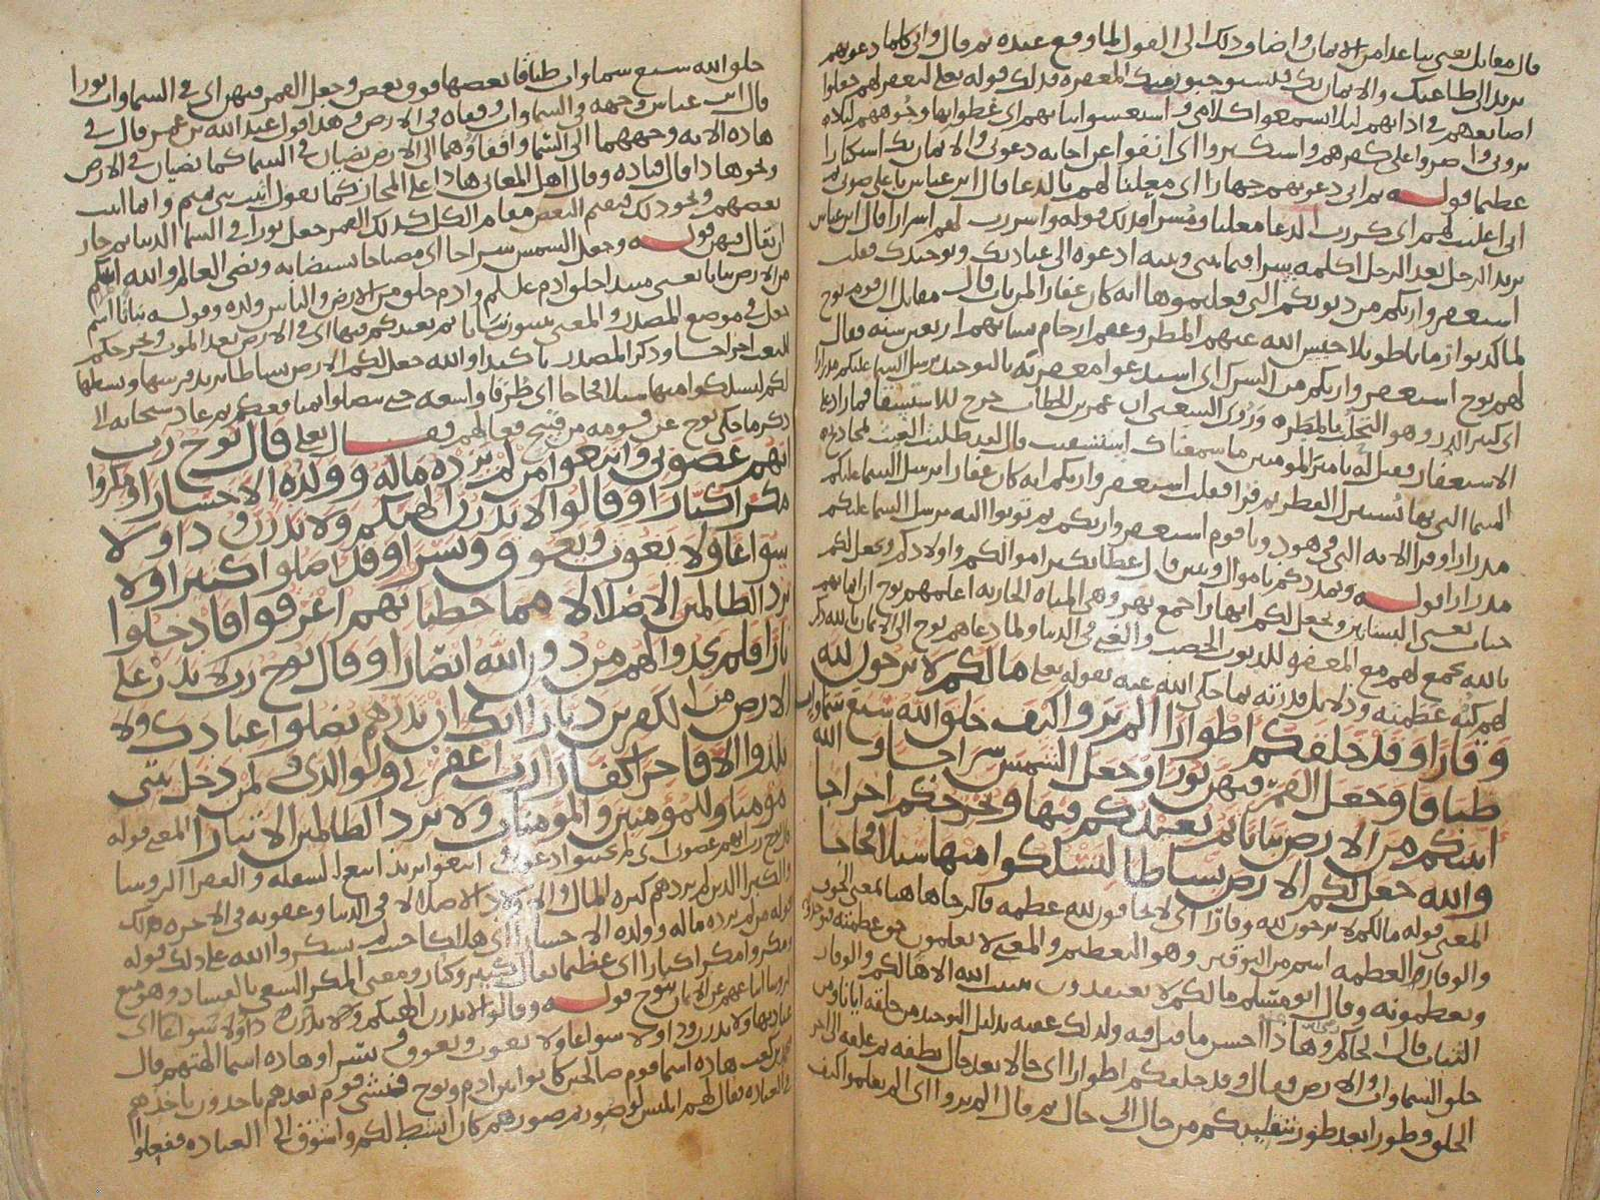 قال مقاتل يعني تباعدا من الايمان وا ضا وذلك الى القول لما وقع عنده ثم قال واني كلما دعوتهم
يريد الى طاعتك والايمان بك
اصابعهم في اذانهم ليلا يسمعوا كلامي واستغشوا ثيابهم اي غطوا بها وجوههم ليلا
يروني واصروا على كفرهم واستكبروا اي انفوا عن اجابه دعوتي والايمان بك استكبارا
عظيما قوله ثم اني دعوتهم جهارا اي معلنا لهم بالدعا قال ابن عباس باعلى صوتي ثم
اني اعلنت لهم اي كررت الدعا معلنا واسررت لهم اسرارا قال ابن عباس
يريد الرجل بعد الرجل اكلمه سرا فيما بيني وبينه ادعوه الى عبادتك وتوحيدك فقلت
استغفروا ربكم من ذنوبكم انه كان غفارا قال مقاتل ان قوم نوح
لما كذبوا زمانا طويلا حبس الله عنهم المطر وعقم ارحام نسايهم اربعين سنه فقال
لهم نوح استغفروا ربكم من الشرك اي استدعوا مغفرته بالتوحيد يرسل السما عليكم مدرارا
اي كثير الدر وهو التحلب بالمطر وروى الشعبي ان عمر بن الخطاب خرج للاستسقا فما زاد على
الاستغفار فقيل له يا امير المومنين ما سمعناك استسقيت قال لقد طلبت الغيث بمجاديح
السما التي بها يستنزل القطر ثم قرا فقلت استغفروا ربكم انه كان غفارا يرسل السما عليكم
مدرارا وقرا الايه التي في هود ويا قوم استغفروا ربكم ثم توبوا اليه يرسل السما عليكم
مدرارا قوله ويمددكم باموال وبنين قال عطا يكثر اموالكم واولادكم ويجعل لكم
جنات يعني البساتين ويجعل لكم انهارا جمع نهر وهي المياه الجاريه اعلمهم نوح ان ايمانهم
بالله يجمع لهم مع المغفره للذنوب الخصب والغنى في الدنيا ولما دعاهم نوح الى الايمان بالله ذكر
لهم عظمته ودلايل قدرته بما حكى الله عنه بقوله تعالى مالكم لا ترجون لله
وقارا وقد خلقكم اطوارا الم تروا كيف خلق الله سبع سماوات
طباقا وجعل القمر فيهن نورا وجعل الشمس سراجا والله
انبتكم من الارض نباتا ثم يعيدكم فيها ويخرجكم اخراجا
والله جعل لكم الارض بساطا لتسلكوا منها سبلا فجاجا
المعنى قوله مالكم لا ترجون لله وقارا اي لا تخافون لله عظمه فالرجا هاهنا بمعنى الخوف
والوقار العظمه اسم من التوقير وهو التعظيم والمعنى لا تعلمون حق عظمته
وتعظمونه وقال ابو مسلم مالكم لا تعتقدون تثبيت الله الاها لكم والوقار
الثبات قال الحاكم وهذا احسن ما قيل فيه ولذلك عقبه بدليل التوحيد من خلقه ايانا ومن
خلق السماوات والارض فقال وقد خلقكم اطوارا اي حالا بعد حال نطفه ثم علقه الى اخر
الخلق وطورا بعد طور تنقلكم من حال الى حال ثم قال الم تروا اي الم تعلموا كيف
خلق الله سبع سماوات طباقا بعضها فوق بعض وجعل القمر فيهن اي في السماوات نورا
قال ابن عباس وجهه في السماوات وقفاه في الارض وهذا قول عبد الله بن عمر قال في
هاذه الايه وجههما الى السما واقفاوهما الى الارض يضيان في السما كما يضيان في الارض
ونحو هاذا قال قتاده وقال اهل المعاني هاذا على المجاز كما يقول اتيت بني تميم وانما اتيت
بعضهم ونحو ذلك فيقيم البعض مقام الكل كذلك القمر جعل نورا في السما الدنيا ثم جاز
ان يقال فيهن قوله وجعل الشمس سراجا اي مصباحا يستضا به ويضي العالم والله انبتكم
من الارض نباتا يعني مبتدا خلق ادم وادم خلق من الارض والناس ولده وقوله نباتا اسم
جعل في موضع المصدر والمعنى نباتا ثم يعيدكم فيها اي في الارض بعد الموت ويخرجكم
للبعث اخراجا وذكر المصدر تاكيدا والله جعل لكم الارض بساطا يريد فرشها وبسطها
لكم لتسلكوا منها سبلا فجاجا اي طرقا واسعه ثم عاد سبحانه الى
ذكر ما حكى نوح عن قومه من قبيح فعالهم فقال تعالى قال نوح رب
انهم عصوني واتبعوا من لم يزده ماله وولده الا خسارا ومكروا
مكرا كبارا وقالوا لا تذرن الهتكم ولا تذرن ودا ولا
سواعا ولا يغوث ويعوق ونسرا وقد اضلوا كثيرا ولا
تزد الظالمين الا ضلالا مما خطياتهم اغرقوا فادخلوا
نارا فلم يجدوا لهم من دون الله انصارا وقال نوح رب لا تذر على
الارض من الكفرين ديارا انك ان تذرهم يضلوا عبادك ولا
يلدوا الا فاجرا كفارا رب اغفر لي ولوالدي ولمن دخل بيتي
مومنا وللمومنين والمومنات ولا تزد الظالمين الا تبارا المعنى قوله
قال نوح رب انهم عصوني اي لم يجيبوا دعوتي واتبعوا يريد اتبع السفله والفقرا الروسا
والكبرا الذين لم يزدهم كثره المال والاولاد الا ضلالا في الدنيا وعقوبه في الاخره وذلك
قوله من لم يزده ماله وولده الا خسارا اي هلاكا حيث لم يشكروا الله على ذلك قوله
ومكروا مكرا كبارا اي عظيما يقال كبير وكبار ومعنى المكر السعي بالفساد وهو منع
الروسا اتباعهم عن الايمان بنوح قوله وقالوا لا تذرن الهتكم ولا تذرن ودا ولا سواعا اي
عبادتها ولا تذرن ودا ولا سواعا ولا يغوث ويعوق ونسرا وهاذه اسما الهتهم قال
محمد بن كعب هاذه اسما قوم صالحين كانوا بين ادم ونوح فنشى قوم بعدهم ياخذون باخذهم
في العباده فقال لهم ابليس لو صورتم صورهم كان انشط لكم واشوق الى العباده ففعلوا